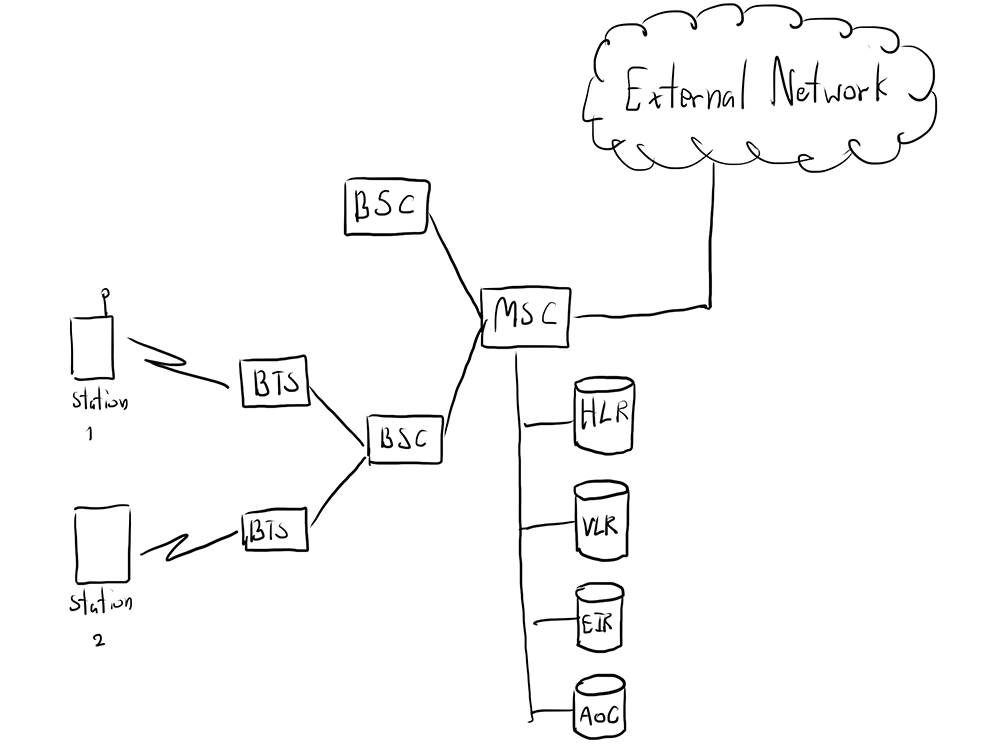 External Network
BSC
MSC
Station
1
BTS
BSC
HLR
Station
2
BTS
VLR
EIR
AoC